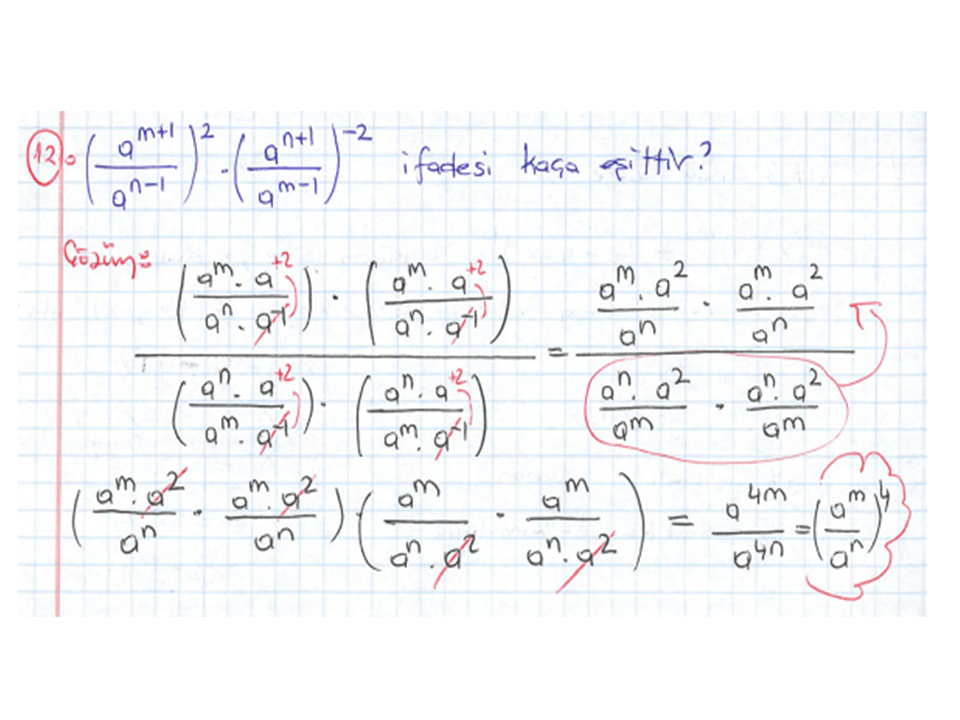 12. (a^(m+1) / a^(n-1))^2 . (a^(n+1) / a^(m-1))^-2 ifadesi kaça eşittir?
Çözüm:
((a^m . a^+2) / (a^n . a^-1)) . ((a^m . a^+2) / (a^n . a^-1)) / ((a^n . a^+2) / (a^m . a^-1)) . ((a^n . a^+2) / (a^m . a^-1)) = (a^m . a^2 / a^n) . (a^m . a^2 / a^n) / (a^n . a^2 / a^m) . (a^n . a^2 / a^m)
(a^m . a^2 / a^n . a^m . a^2 / a^n) . (a^m / a^n . a^2 . a^m / a^n . a^2) = a^4m / a^4n = (a^m / a^n)^4